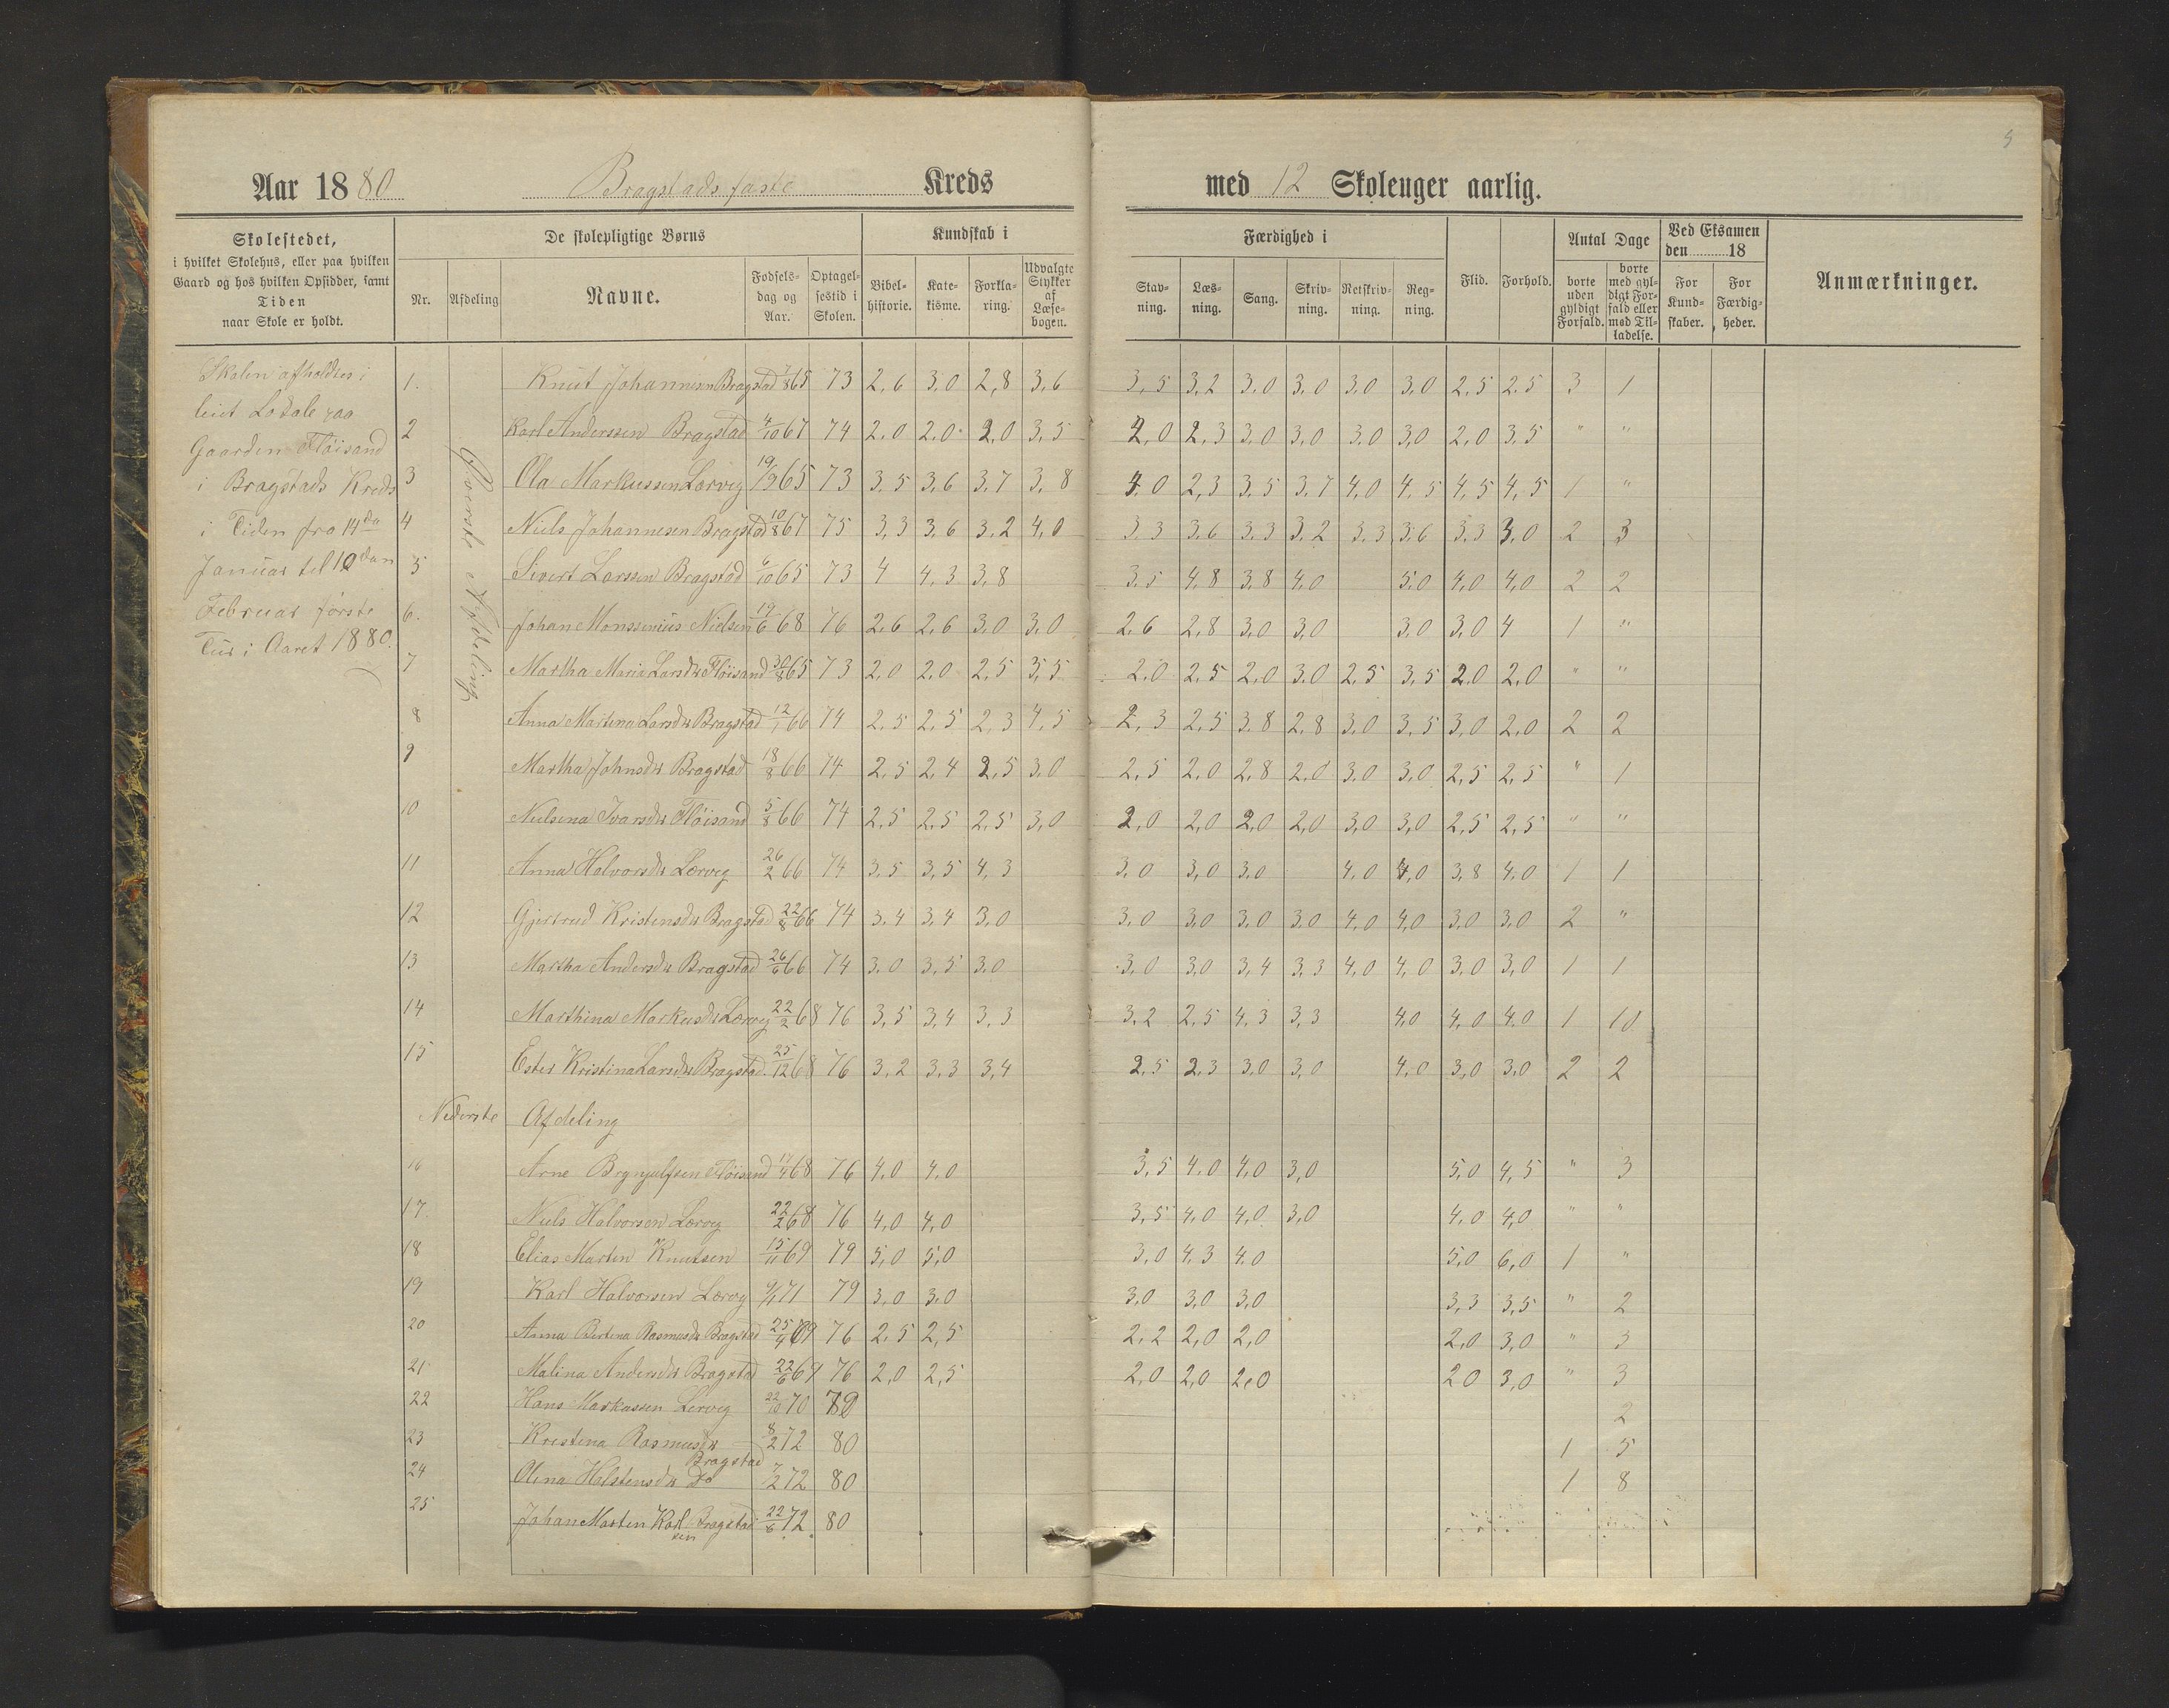 5
Aar 1880 Bragstads faste Kreds med 12 Skoleuger aarlig.
Skolestedet,
i hvilket Skolehus, eller paa hvilken
Gaard og hos hvilken Opsidder, samt
Tiden
naar Skole er holdt.
De skolepligtige Børns
Nr. Afdeling Navne. Fødselsdag og Aar. Optagelsestid i Skolen.
Kundskab i
Bibelhistorie. Katekisme. Forklaring. Udvalgte Stykker af Læsebogen.
Færdighed i
Stavning. Læsning. Sang. Skrivning. Retskrivning. Regning.
Flid. Forhold.
Antal Dage
borte uden gyldigt Forfald. borte med gyldigt Forfald eller med Tilladelse.
Ved Eksamen den 18
For Kundskaber. For Færdigheder.
Anmærkninger.
Skolen afholdtes i
leiet Lokale paa
Gaarden Fløisand
i Bragstads Kreds
i Tiden fra 14da
Januar til 10dan
Februar første
Tur i Aaret 1880.
Øverste Afdeling
1. Knut Johannesen Bragstad 7/8 65 73 2,6 3,0 2,8 3,6 3,5 3,2 3,0 3,0 3,0 3,0 2,5 2,5 3 1
2 Karl Anderssen Bragstad 4/10 67 74 2,0 2,0 2,0 3,5 2,0 2,3 3,0 3,0 3,0 3,0 2,0 3,5 " "
3 Ola Markussen Lærvig 19/9 65 73 3,5 3,6 3,7 3,8 4,0 2,3 3,5 3,7 4,0 4,5 4,5 4,5 1 "
4 Niels Johannesen Bragstad 10/8 67 75 3,3 3,6 3,2 4,0 3,3 3,6 3,3 3,2 3,3 3,6 3,3 3,0 2 3
5 Sivert Larssen Bragstad 6/10 65 73 4 4,3 3,8 3,5 4,8 3,8 4,0 5,0 4,0 4,0 2 2
6. Johan Monssinius Nielsen 19/6 68 76 2,6 2,6 3,0 3,0 2,6 2,8 3,0 3,0 3,0 3,0 4 1 "
7 Martha Maria Larsdtr Fløisand 31/8 65 73 2,0 2,0 2,5 3,5 2,0 2,5 2,0 3,0 2,5 3,5 2,0 2,0 " "
8 Anna Martina Larsdtr Bragstad 12/1 66 74 2,5 2,5 2,3 4,5 2,3 2,5 3,8 2,8 3,0 3,5 3,0 2,0 2 2
9 Martha Johnsdtr Bragstad 18/8 66 74 2,5 2,4 2,5 3,0 2,5 2,0 2,8 2,0 3,0 3,0 2,5 2,5 " 1
10 Nielsina Ivarsdtr Fløisand 5/8 66 74 2,5 2,5 2,5 3,0 2,0 2,0 2,0 2,0 3,0 3,0 2,5 2,5 " "
11 Anna Halvorsdtr Lærvig 26/2 66 74 3,5 3,5 4,3 3,0 3,0 3,0 4,0 4,0 3,8 4,0 1 1
12 Gjertrud Kristensdtr Bragstad 22/8 66 74 3,4 3,4 3,0 3,0 3,0 3,0 3,0 4,0 4,0 3,0 3,0 2 "
13 Martha Andersdtr Bragstad 26/6 66 74 3,0 3,5 3,0 3,0 3,0 3,4 3,3 4,0 4,0 3,0 3,0 1 1
14 Marthina Markusdtr Lærvig 22/2 68 76 3,5 3,4 3,3 3,2 2,5 4,3 3,3 4,0 4,0 4,0 1 10
15 Ester Kristina Larsdtr Bragstad 25/12 68 76 3,2 3,3 3,4 2,5 2,3 3,0 3,0 4,0 3,0 3,0 2 2
Nederste Afdeling
16 Arne Brynjulfsen Fløisand 17/4 68 76 4,0 4,0 3,5 4,0 4,0 3,0 5,0 4,5 " 3
17. Niels Halvorsen Lærvig 22/2 68 76 4,0 4,0 3,5 4,0 4,0 3,0 4,0 4,0 " "
18 Elias Marten Knutsen 15/11 69 79 5,0 5,0 3,0 4,3 4,0 5,0 6,0 1 "
19 Karl Halvorsen Lærvig 9/1 71 79 3,0 3,0 3,0 3,0 3,0 3,3 3,5 " 2
20 Anna Bertina Rasmusdtr Bragstad 25/4 69 76 2,5 2,5 2,2 2,0 2,0 2,0 3,0 " 3
21 Malina Andersdtr Bragstad 22/6 69 76 2,0 2,5 2,0 2,0 2,0 2,0 3,0 " 3
22 Hans Markussen Lervig 22/10 70 79 2
23 Kristina Rasmusdtr Bragstad 8/2 72 80 1 5
24 Olina Holstensdtr Do 7/2 72 80 1 8
25 Johan Marten Karlsen Bragstad 22/6 72 80